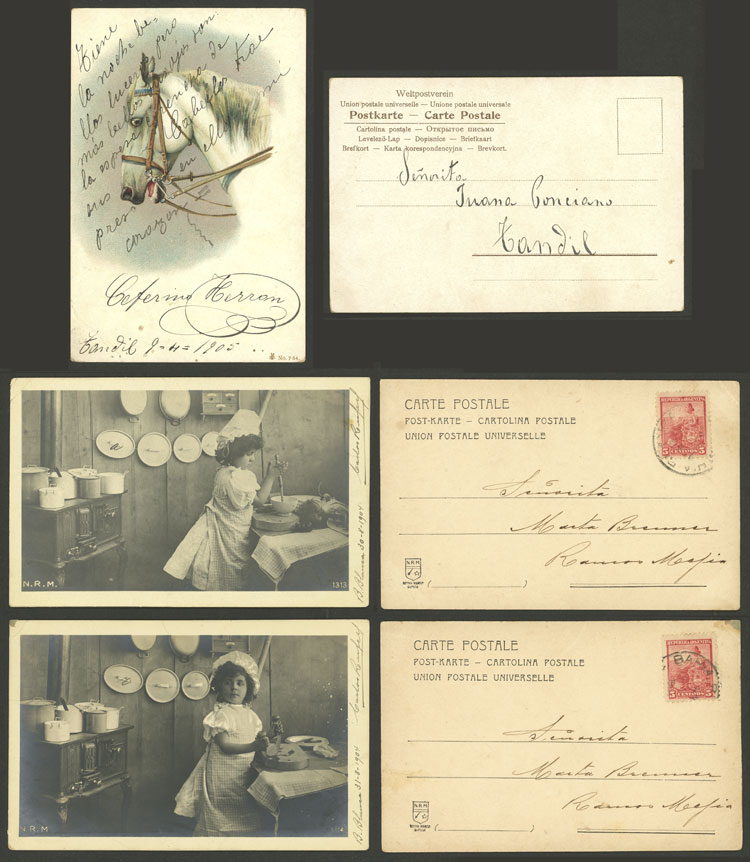 Tiene
la noche be-
llas luceros pero
más bellos ojos son
la esperanza
sus
en ella mi
corazon
Ceferino Herran
Tandil 9-4-1905
No. 744
Weltpostverein
Union postale universelle — Unione postale universale
Postkarte — Carte Postale
Cartolina postale — Открытое письмо
Levelező-Lap — Dopisnice — Briefkaart
Brefkort — Karta korespondencyjna — Brevkort.
Señorita
Juana Ponciano
Tandil
N.R.M.
1313
B. Blanca 30-8-1904
CARTE POSTALE
POST-KARTE – CARTOLINA POSTALE
UNION POSTALE UNIVERSELLE
REPUBLICA ARGENTINA
5 CENTAVOS 5
Señorita
Marta Brenner
Ramos Mejia
N R M
N.R.M
B. Blanca 31-8-1904
CARTE POSTALE
POST-KARTE – CARTOLINA POSTALE
UNION POSTALE UNIVERSELLE
REPUBLICA ARGENTINA
BAHIA B
5 CENTAVOS 5
Señorita
Marta Brenner
Ramos Mejia
N R M